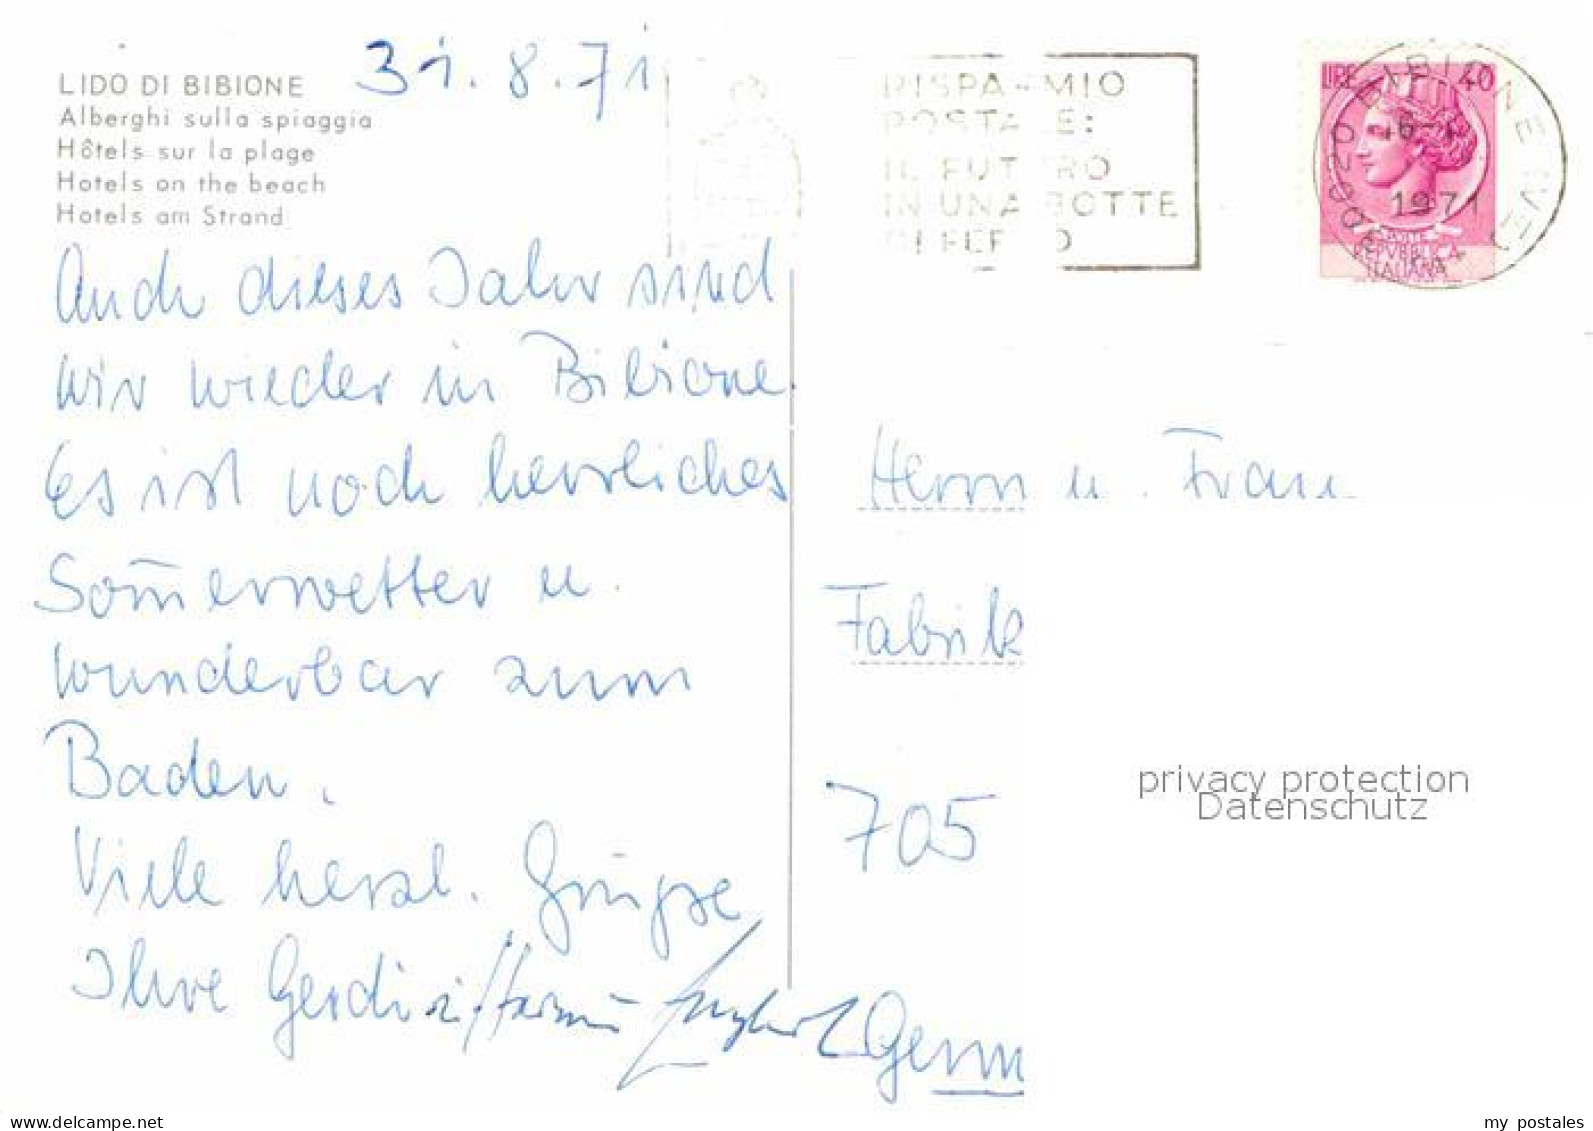 31.8.71
LIDO DI BIBIONE
Alberghi sulla spiaggia
Hôtels sur la plage
Hotels on the beach
Hotels am Strand
Auch dieses Jahr sind
wir wieder in Bibione
Es ist noch herrliches
Som̄erwetter u.
wunderbar zum
Baden.
Viele herzl. Grüße
Ihre
RISPARMIO
POSTALE:
IL FUTURO
IN UNA BOTTE
DI FERRO
LIRE 40
30020 BIBIONE (VE)
1971
REPUBBLICA
ITALIANA
Herrn u. Frau
Fabrik
705
Germ
privacy protection
Datenschutz
www.delcampe.net
my_postales